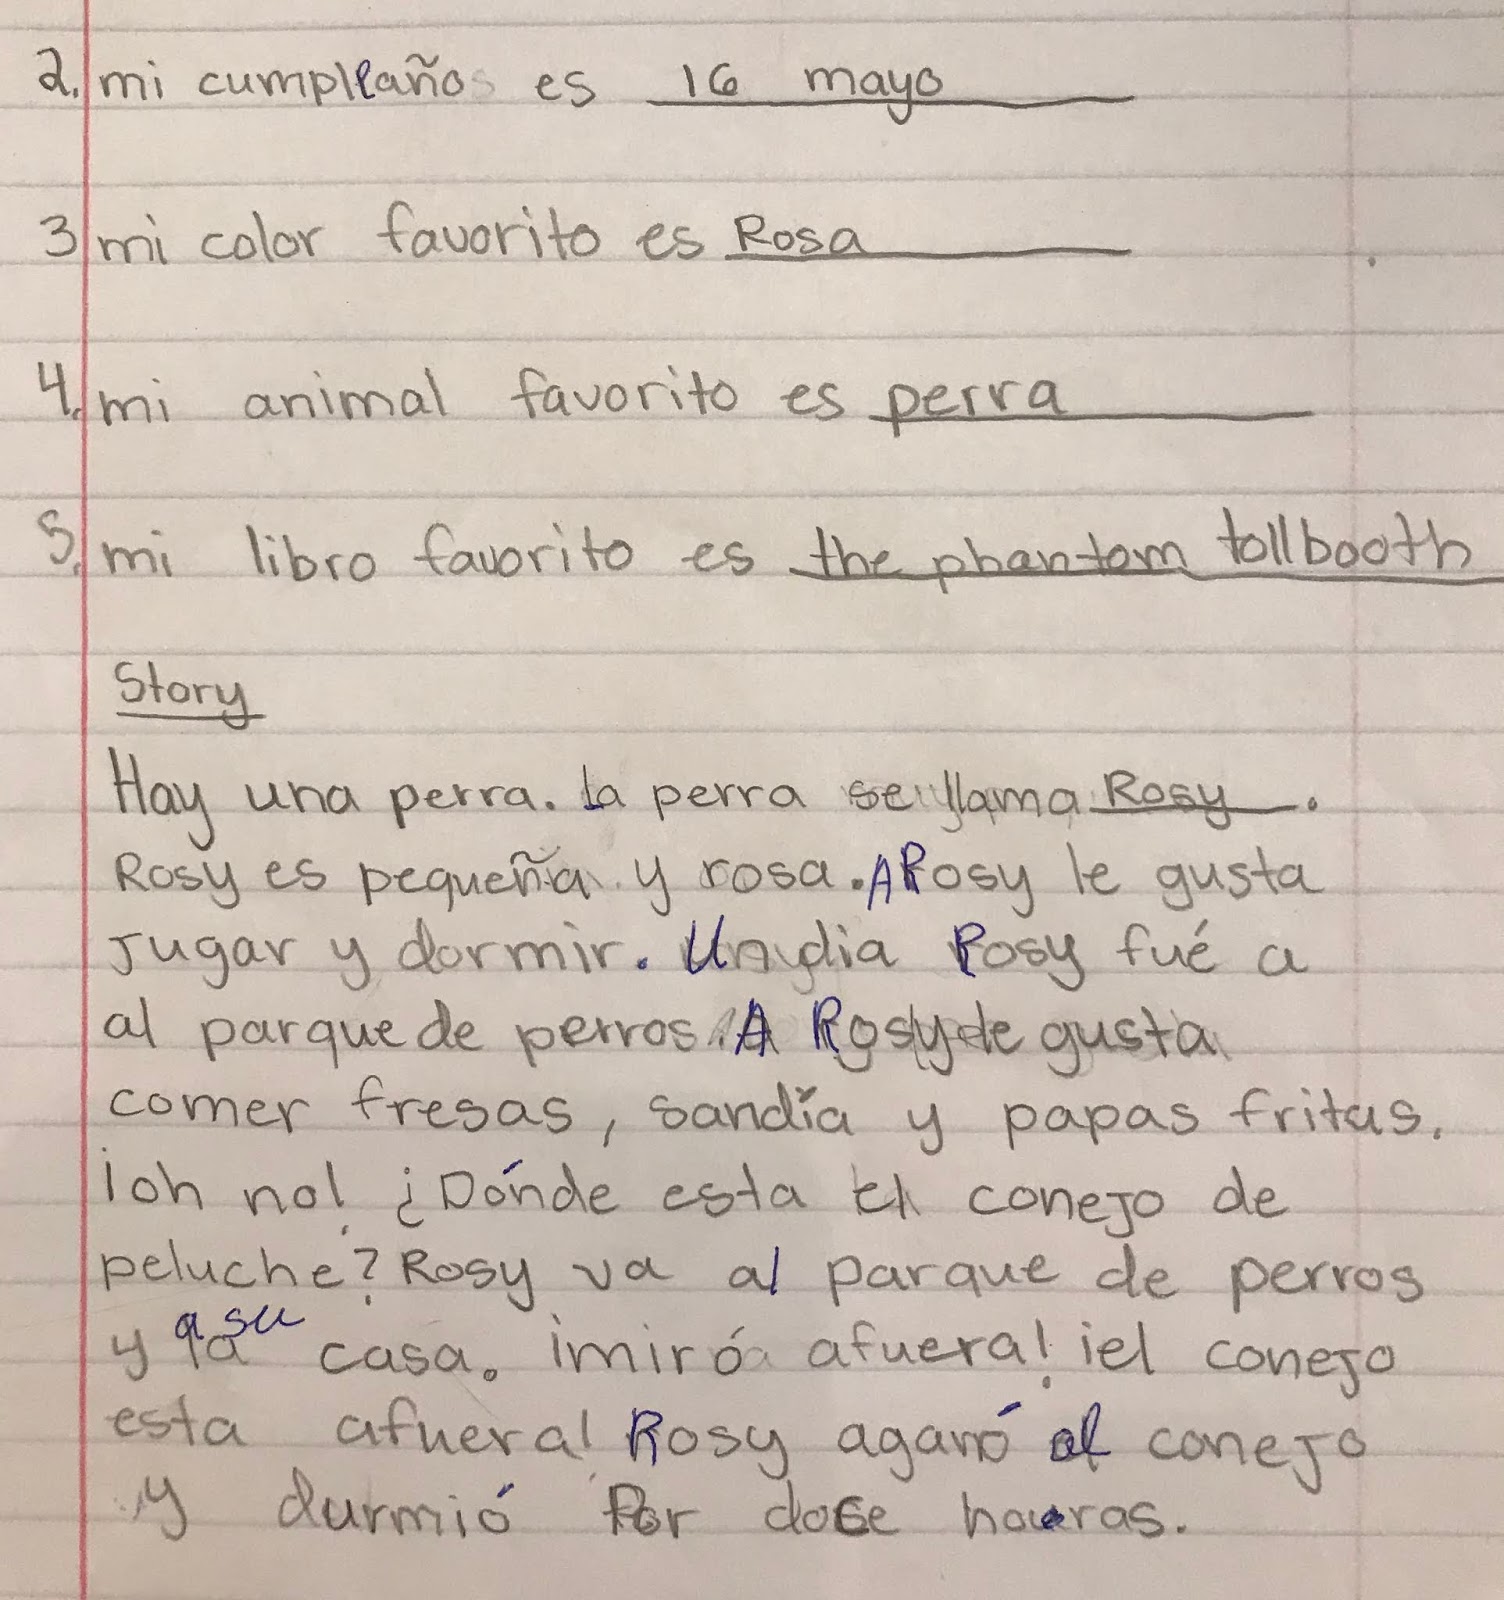 2. mi cumpleaños es 16 mayo
3 mi color favorito es Rosa
4. mi animal favorito es perra
5. mi libro favorito es the phantom tollbooth
Story
Hay una perra. La perra se llama Rosy.
Rosy es pequeña y rosa. A Rosy le gusta
Jugar y dormir. Un dia Rosy fué a
al parque de perros. A Rosy le gusta
comer fresas, sandía y papas fritas.
¡oh no! ¿Dónde esta el conejo de
peluche? Rosy va al parque de perros
y a su casa. ¡miró afuera! ¡el conejo
esta afuera! Rosy agarró al conejo
y durmió Por doce horas.